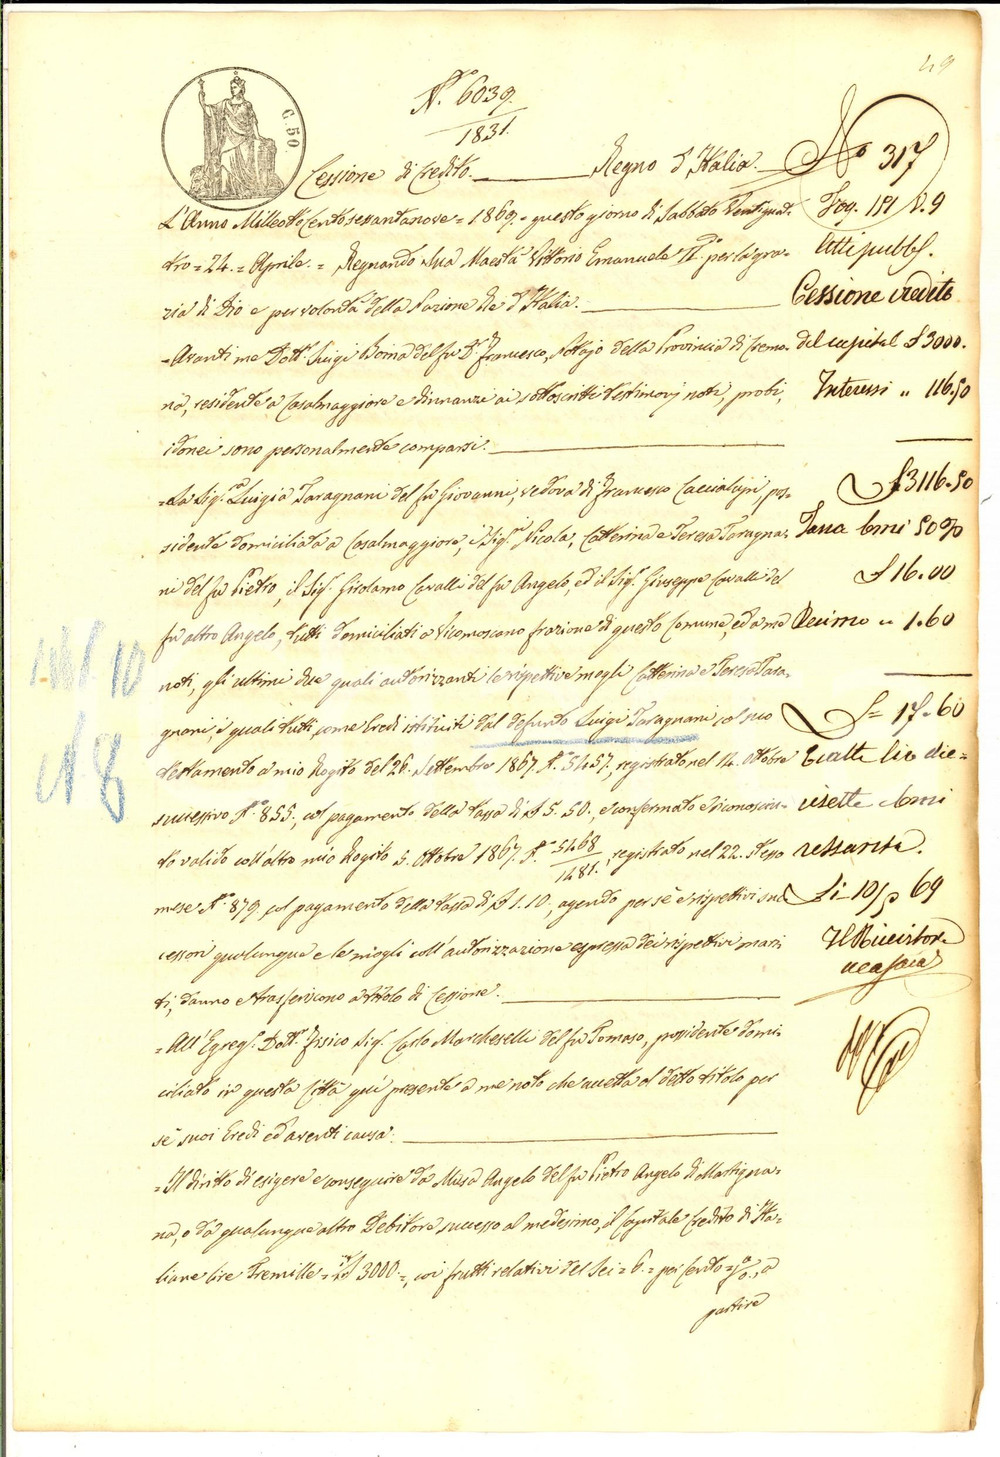 49
C. 50.
N.° 6039.
1831.
Cessione di Credito. Regno d'Italia.
L'Anno Milleottocentosessantanove = 1869 = questo giorno di Sabbato Ventiquat-
tro = 24. = Aprile. = Regnando Sua Maestà Vittorio Emanuele II.° per la gra-
zia di Dio e per volontà della Nazione Re d'Italia.
= Avanti me Dott.r Luigi Boina del fu D.r Francesco, Notajo della Provincia di Cremo-
na, residente a Casalmaggiore e dinnanzi ai sottoscritti testimonj noti, probi,
idonei sono personalmente comparsi.
= La Sig.ra Luigia Taragnani del fu Giovanni, vedova di Francesco Caccialupi pos-
sidente domiciliata a Casalmaggiore, i Sig.ri Nicola, Catterina e Teresa Taragna-
ni del fu Pietro, il Sig.r Girolamo Cavalli del fu Angelo, ed il Sig.r Giuseppe Cavalli del
fu altro Angelo, tutti domiciliati a Vicomoscano frazione di questo Comune, ed a me
noti, gli ultimi due quali autorizzanti le rispettive mogli Catterina e Teresa Tara-
gnani, i quali tutti, come Eredi istituiti dal defunto Luigi Taragnani col suo
testamento a mio Rogito del 26. Settembre 1867. N.° 5457, registrato nel 12. Ottobre
successivo N.° 855, col pagamento della tassa di £ 5. 50., e confermato e riconosciu-
to valido coll'altro mio Rogito 5. Ottobre 1867. N.° 5468/1481., registrato nel 22. stesso
mese N.° 879. col pagamento della tassa di £ 1. 10., agendo per sè e rispettivi suc-
cessori qualunque e le mogli coll'autorizzazione espressa dei rispettivi mari-
ti, danno e trasferiscono a titolo di Cessione.
= All'Egreg.° Dott.r Fisico Sig.r Carlo Marcheselli del fu Tomaso, possidente domi-
ciliato in questa Città quì presente a me noto che accetta al detto titolo per
sè suoi Eredi ed aventi causa.
= Il diritto di esigere e conseguire da Musa Angelo del fu Pietro Angelo di Martigna-
na, o da qualunque altro Debitore successo al medesimo, il Capitale Credito di Ita-
liane lire Tremille = £ 3000 =, coi frutti relativi del sei = 6. = per Cento = %., a
partire
N° 317
Fog. 191 V. 9
Atti pubbl.
Cessione credito
del capital £ 3000.
Interessi „ 116.50
£ 3116.50
Tassa 50 %
£ 16.00
Decimo „ 1.60
£ = 17.60
lire die=
cisette e cmi
sessanta.
Li 10/5 69
Il Ricevitore
10
N 8